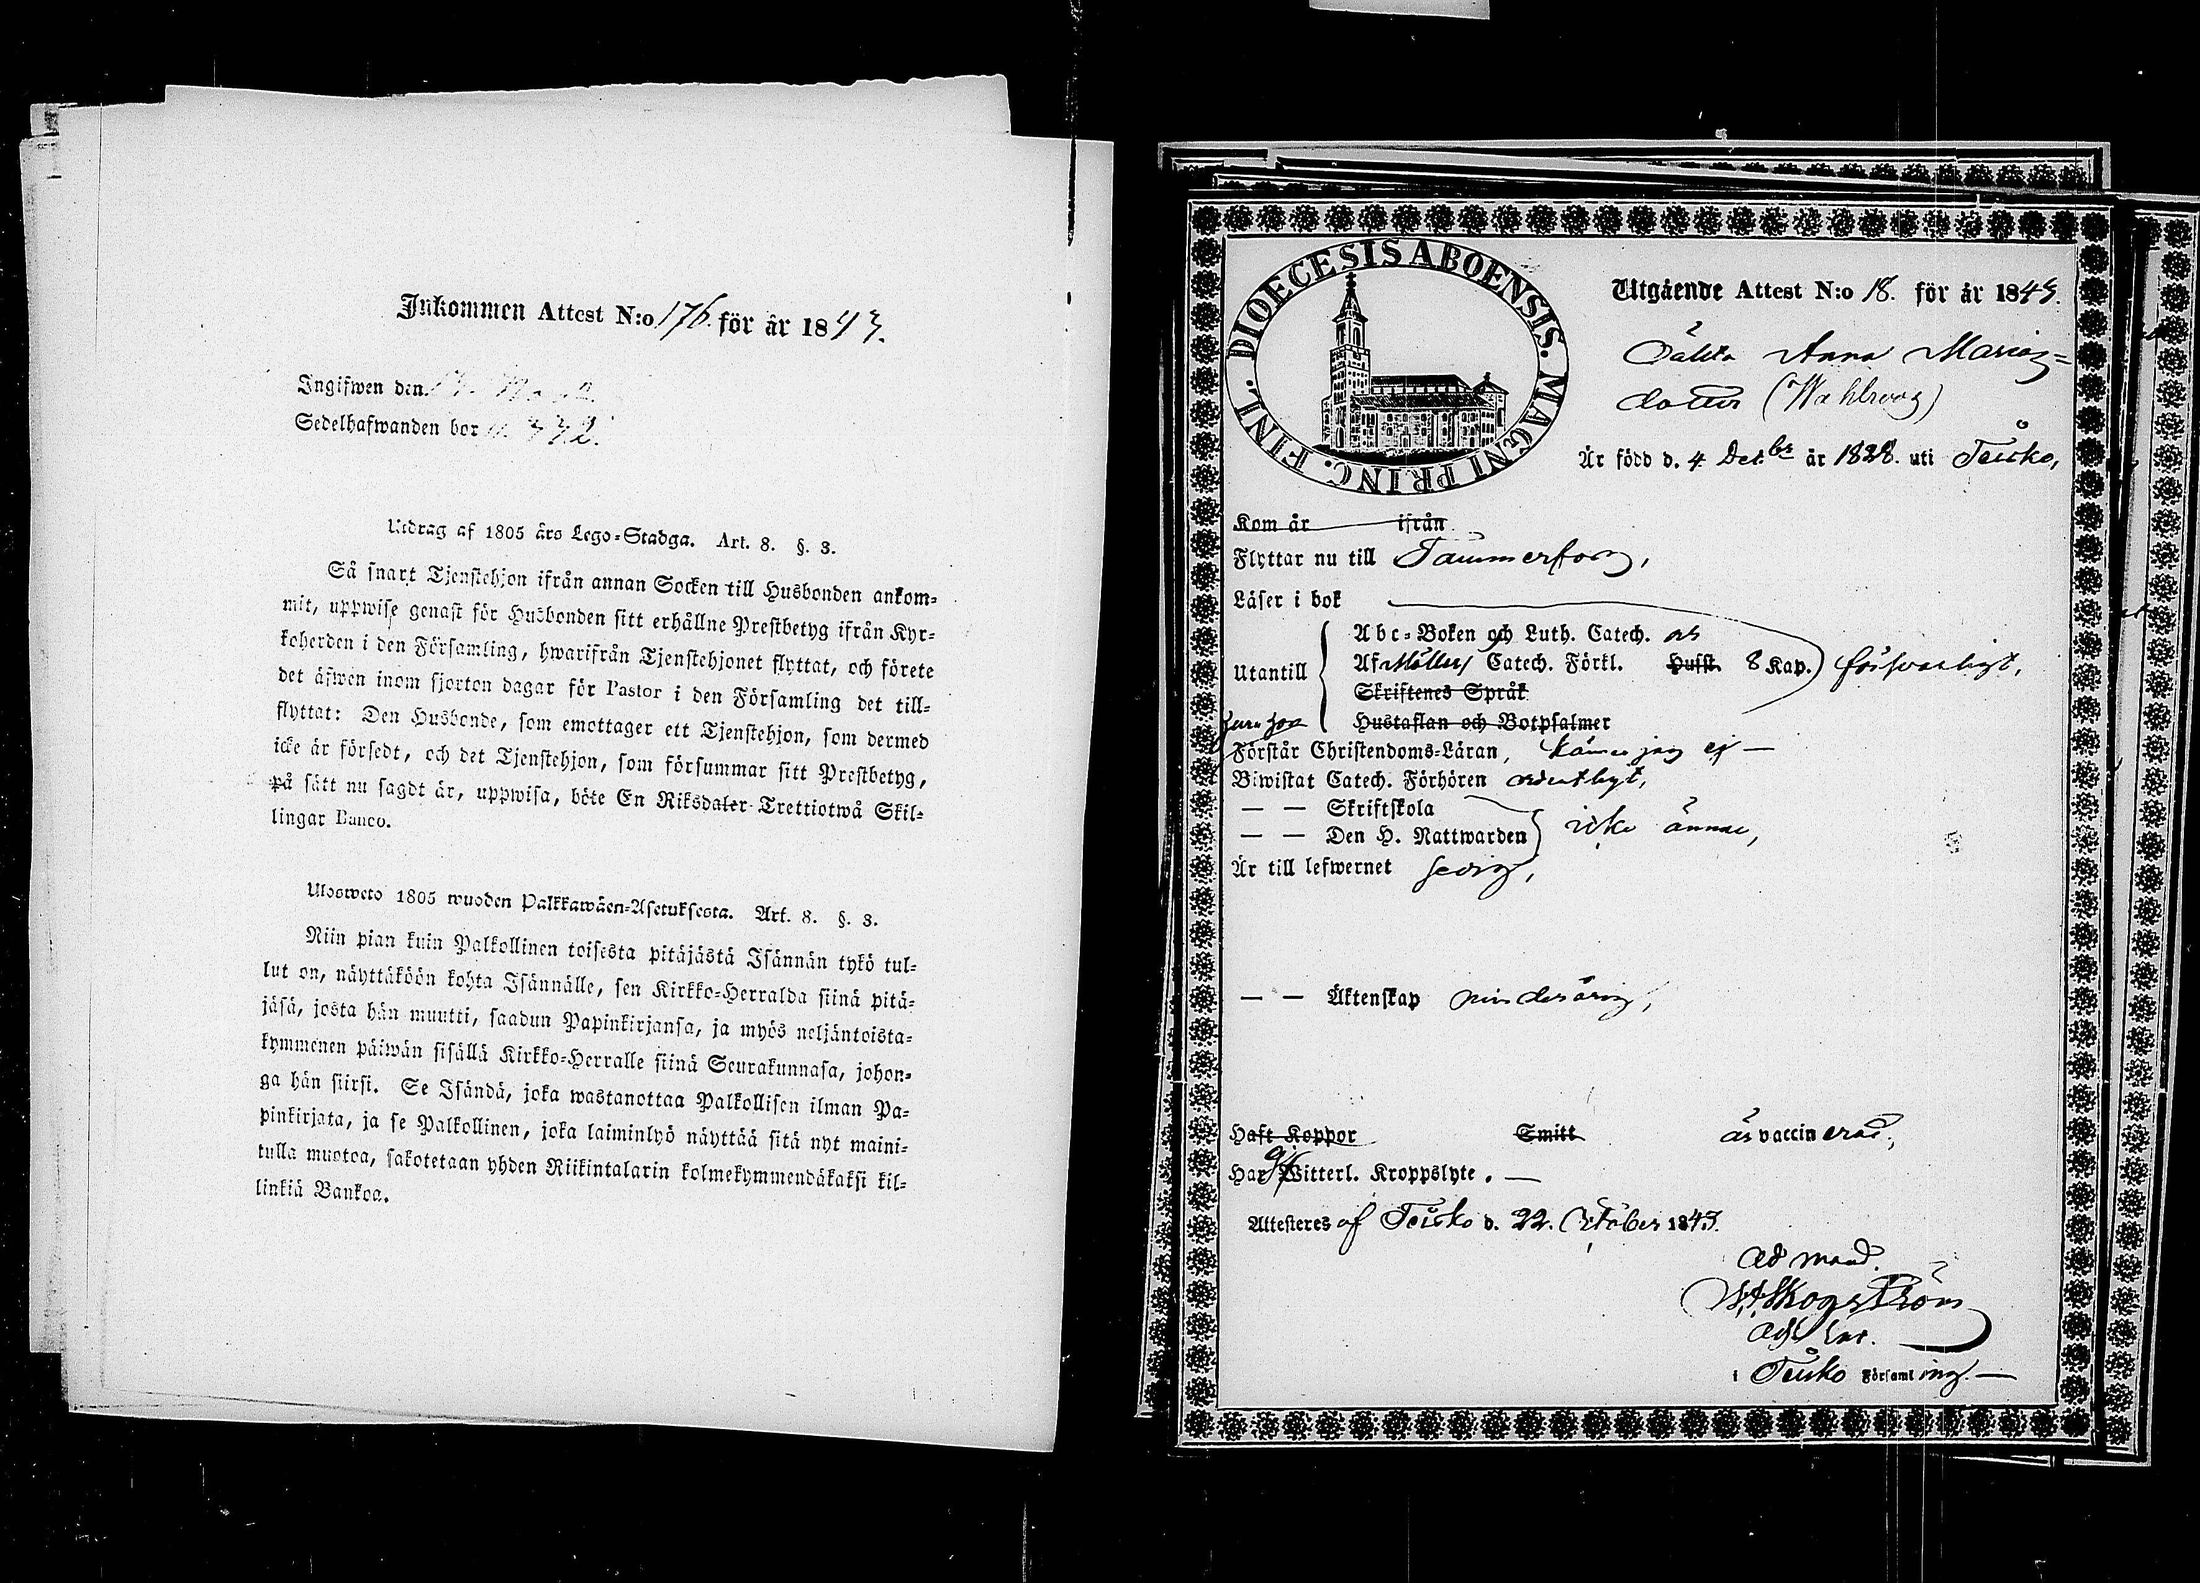 Inkommen Attest N:o 176. för år 1843.
Ingifwen den
Sedelhafwanden bor
Utdrag af 1805 års Lego-Stadga. Art. 8. §. 3.
Så snart Tjenstehjon ifrån annan Socken till Husbonden ankom-
mit, uppwise genast för Husbonden sitt erhållne Prestbetyg ifrån Kyr-
koherden i den Församling, hwarifrån Tjenstehjonet flyttat, och förete
det äfwen inom fjorton dagar för Pastor i den Församling det till-
flyttat: Den Husbonde, som emottager ett Tjenstehjon, som dermed
icke är försedt, och det Tjenstehjon, som försummar sitt Prestbetyg,
på sätt nu sagdt är, uppwisa, böte En Riksdaler Trettiotwå Skil-
lingar Banco.
Ulosweto 1805 wuoden Palkkawäen-Asetuksesta. Art. 8. §. 3.
Niin pian kuin Palkollinen toisesta pitäjästä Isännän tykö tul-
lut on, näyttäköön kohta Isännälle, sen Kirkko-Herralda siinä pitä-
jäsä, josta hän muutti, saadun Papinkirjansa, ja myös neljäntoista-
kymmenen päiwän sisällä Kirkko-Herralle siinä Seurakunnasa, johon-
ga hän siirsi. Se Isändä, joka wastanottaa Palkollisen ilman Pa-
pinkirjata, ja se Palkollinen, joka laiminlyö näyttää sitä nyt maini-
tulla muotoa, sakotetaan yhden Riikintalarin kolmekymmendäkaksi kil-
linkiä Bankoa.
DIOECESIS ABOENSIS. MAGNI PRINC. FINL.
Utgående Attest N:o 18. för år 1843.
Oäkta Anna Mariæ=
dotter (Wahlroos)
Är född d. 4 Dec.br år 1828. uti Teisko,
Kom år ifrån
Flyttar nu till Tammerfors,
Läser i bok
Utantill
Abc-Boken och Luth. Catech.
Af Möllers Catech. Förkl. Husst. 8 Kap. försvarligt,
Skriftenes Språk
Hustaflan och Botpsalmer
Huru hon
Förstår Christendoms-Läran, känner jag ej —
Biwistat Catech. Förhören ordentligt,
— — Skriftskola
— — Den H. Nattwarden icke ännu,
Är till lefwernet sedig,
— — Äktenskap minderårig,
Haft Koppor Smitt är vaccinerad,
Har ej Witterl. Kroppslyte. —
Attesteres af Teisko d. 22. October 1843.
Ad mand.
Skogström
i Teisko Församling. —